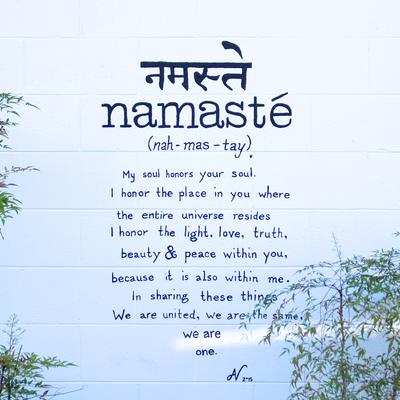 नमस्ते
namasté
(nah-mas-tay).
My soul honors your soul.
I honor the place in you where
the entire universe resides
I honor the light, love, truth,
beauty & peace within you,
because it is also within me.
In sharing these things
We are united, we are the same,
we are
one.